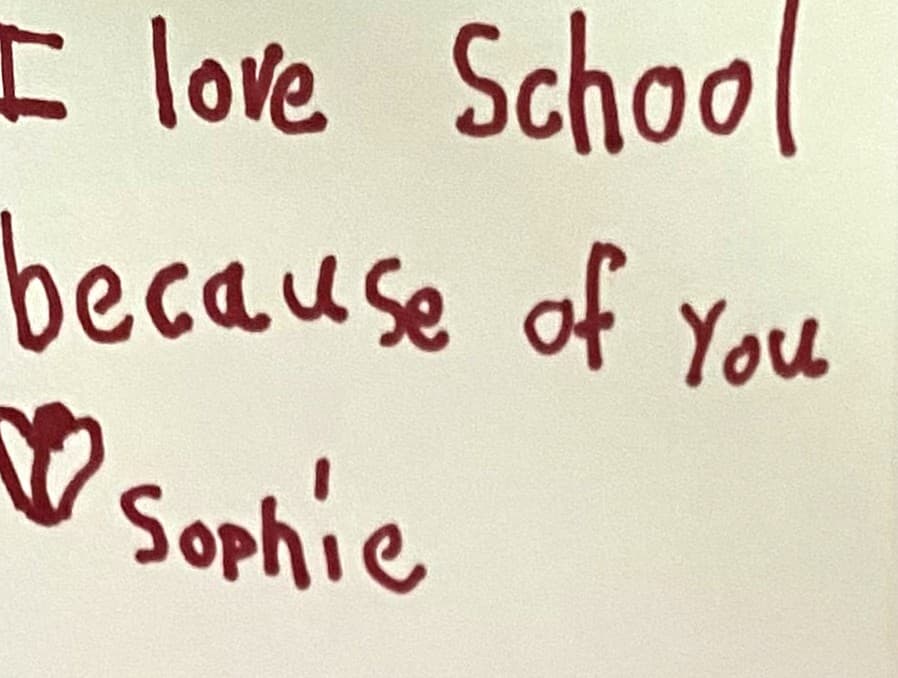 I love School
because of You
Sophie